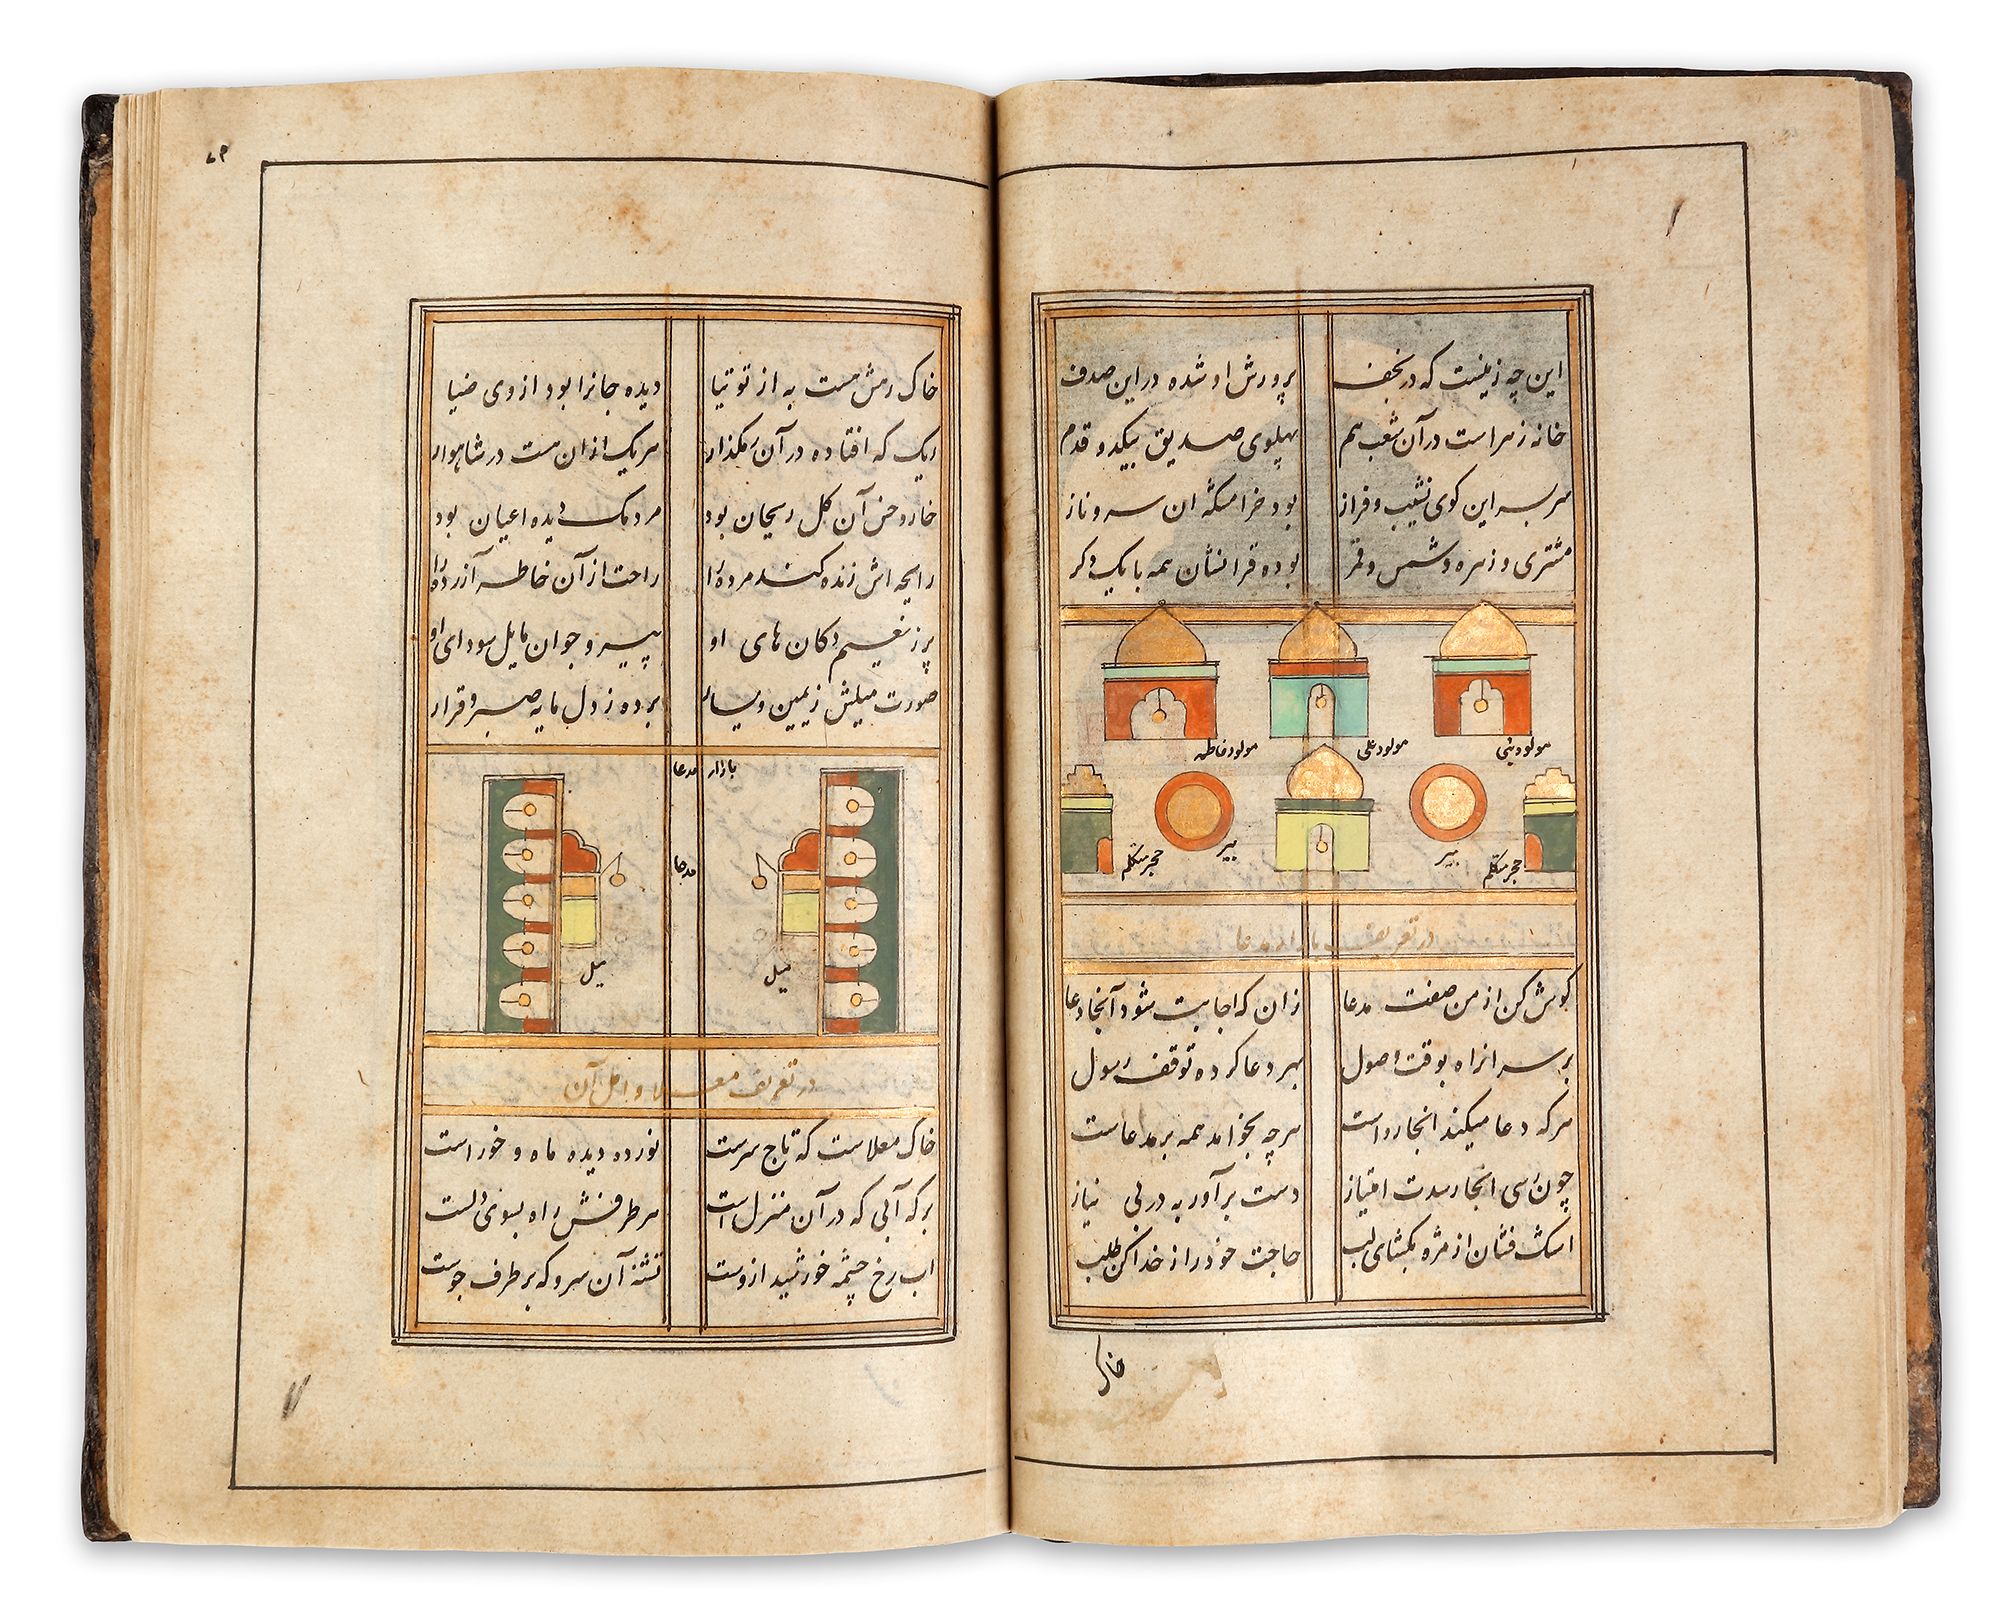 این چه زمینست که در نجف پرورش او شده در این صدف
خانه زهرا است در آن شعب هم پهلوی صدیق بیکدو قدم
سربسر این کوی نشیب و فراز بود خرامگه ان سرو ناز
مشتری و زهره و شمس و قمر بوده قرانشان همه با یکدگر
مولود نبی مولود علی مولود فاطمه
حجر متکلم بیر بیر حجر متکلم
در تعریف بازار مدعا
کوش کن از من صفت مدعا زان که اجابت شود آنجا دعا
بر سر انراه بوقت وصول بهر دعا کرده توقف رسول
هرکه دعا میکند انجا رواست هرچه بخواهد همه بر مدعاست
چون رسی انجا رسدت امتیاز دست برآور به در بی نیاز
اشک فشان از مژه بکشای لب حاجت خود را ز خدا کن طلب
خاک
۷۹
خاک رهش هست به از توتیا دیده جانرا بود از وی ضیا
ریک که افتاده در آن رهکذار هریک از ان هست در شاهوار
خار و خس آن کل ریحان بود مردمک دیده اعیان بود
رایحه اش زنده کند مرده را راحت از آن خاطر آزرده را
پر ز نعیم دکان های او پیر و جوان مایل سودای او
صورت میلش ز یمین و یسار برده ز دل مایه صبر و قرار
بازار مدعا
مدعا
میل میل
در تعریف معلا و اهل آن
خاک معلاست که تاج سرست نور ده دیده ماه و خور است
برکه آبی که در آن منزل است هر طرفش راه بسوی دلست
اب رخ چشمه خورشید ازوست تشنه آن سرو که بر طرف جوست